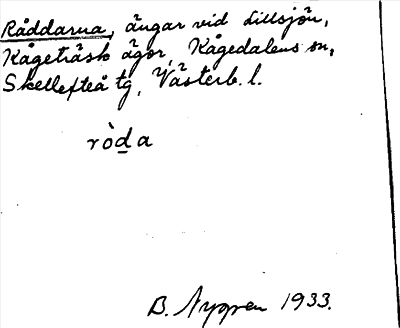 Råddarna, ängar vid Lillsjön,
Kågeträsk ägor, Kågedalens sn,
Skellefteå tg, Västerb. l.
ròḏa
B. Nygren 1933.